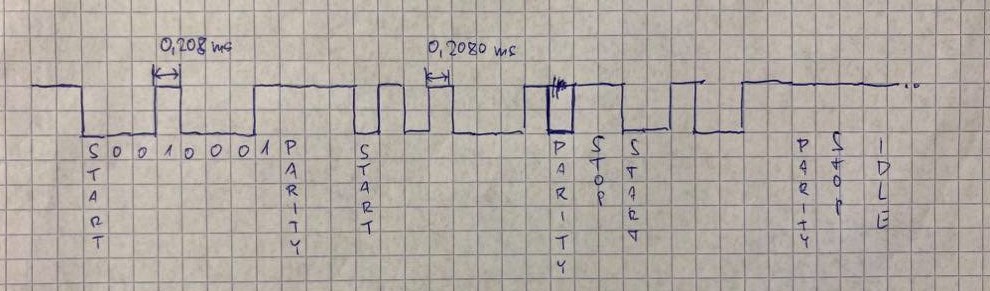 0,208 ms
0,2080 ms
START 0 0 1 0 0 0 1 PARITY START PARITY STOP START PARITY STOP IDLE